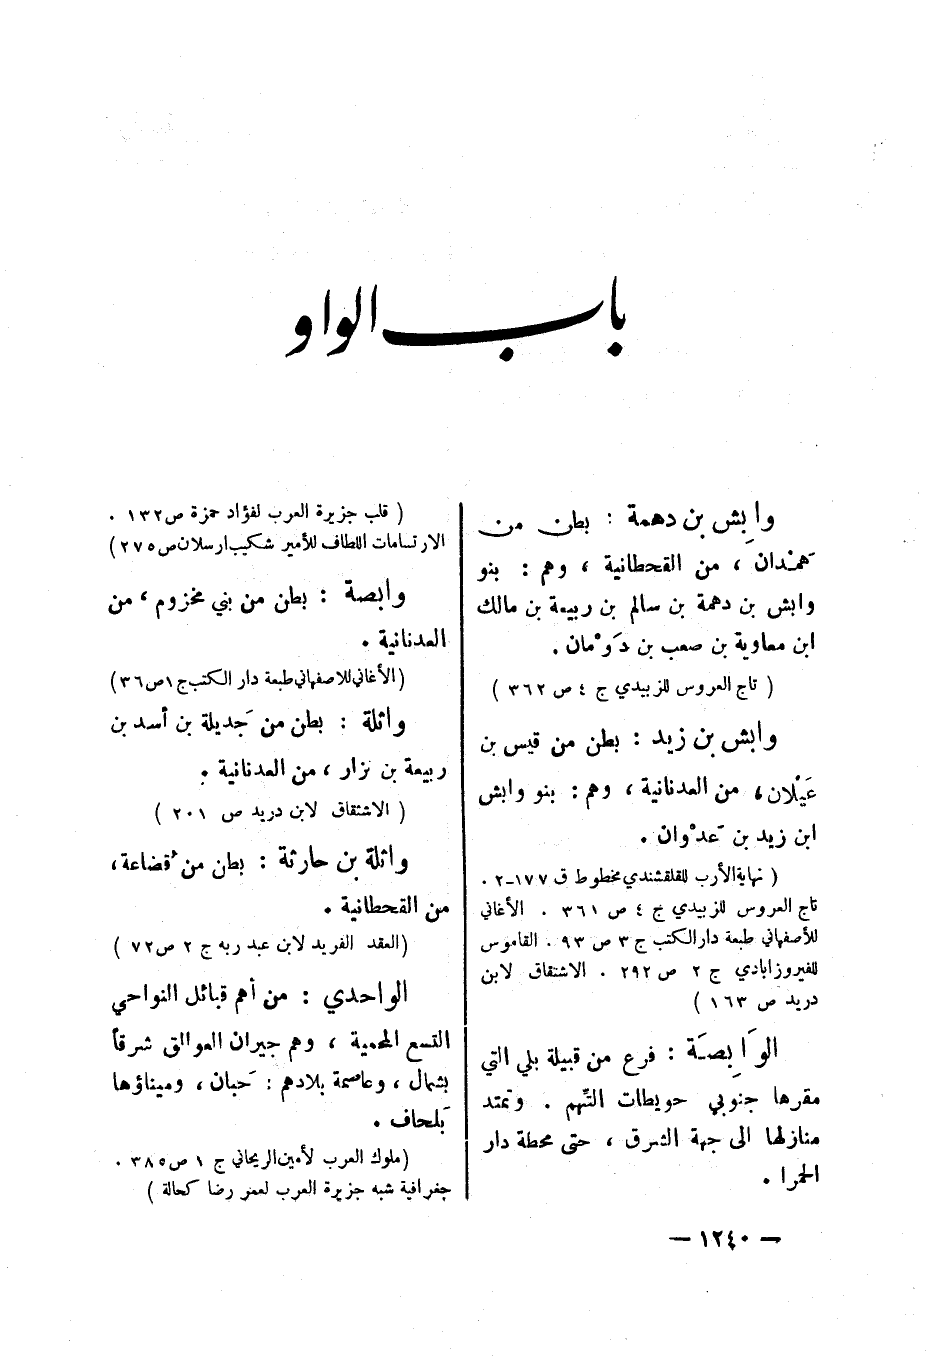 باب الواو
وابِش بن دهمة : بطن من
هَمْدان ، من القحطانية ، وهم : بنو
وابش بن دهمة بن سالم بن ربيعة بن مالك
ابن معاوية بن صعب بن دَوْمان .
( تاج العروس للزبيدي ج ٤ ص ٣٦٢ )
وابش بن زيد : بطن من قيس بن
عَيْلان ، من العدنانية ، وهم : بنو وابش
ابن زيد بن عَدْوان .
( نهاية الأرب للقلقشندي مخطوط ق ١٧٧-٢ .
تاج العروس للزبيدي ج ٤ ص ٣٦١ . الأغاني
للأصفهاني طبعة دار الكتب ج ٣ ص ٩٣ . القاموس
للفيروزابادي ج ٢ ص ٢٩٢ . الاشتقاق لابن
دريد ص ١٦٣ )
الوَابِصَة : فرع من قبيلة بلي التي
مقرها جنوبي حويطات التَّهم . وتمتد
منازلها الى جهة الشرق ، حتى محطة دار
الحمرا .
( قلب جزيرة العرب لفؤاد حمزة ص ١٣٢ .
الارتسامات اللطاف للأمير شكيب ارسلان ص ٢٧٥ )
وابصة : بطن من بني مخزوم ، من
العدنانية .
( الأغاني للاصفهاني طبعة دار الكتب ج ١ ص ٣٦ )
واثلة : بطن من جَديلة بن أسد بن
ربيعة بن نزار ، من العدنانية .
( الاشتقاق لابن دريد ص ٢٠١ )
واثلة بن حارثة : بطن من قُضاعة ،
من القحطانية .
( العقد الفريد لابن عبد ربه ج ٢ ص ٧٢ )
الواحدي : من أهم قبائل النواحي
التسع المحمية ، وهم جيران العوالق شرقاً
بشمال ، وعاصمة بلادهم : حَبان ، وميناؤها
بَلحاف .
( ملوك العرب لأمين الريحاني ج ١ ص ٣٨٥ .
جغرافية شبه جزيرة العرب لعمر رضا كحالة )
— ١٢٤٠ —